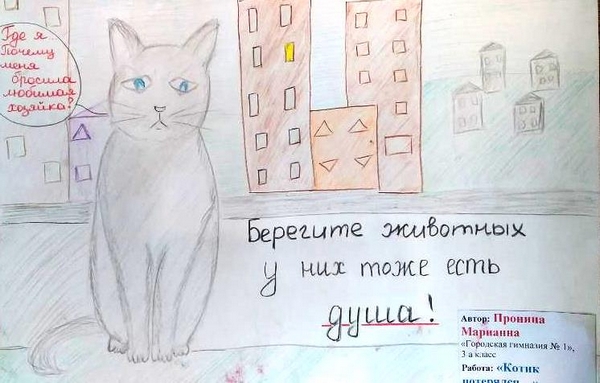 Где я...
Почему
меня
бросила
любимая
хозяйка?
Берегите животных
у них тоже есть
душа!
Автор: Пронина
Марианна
«Городская гимназия № 1»,
3 а класс
Работа: «Котик
потерялся